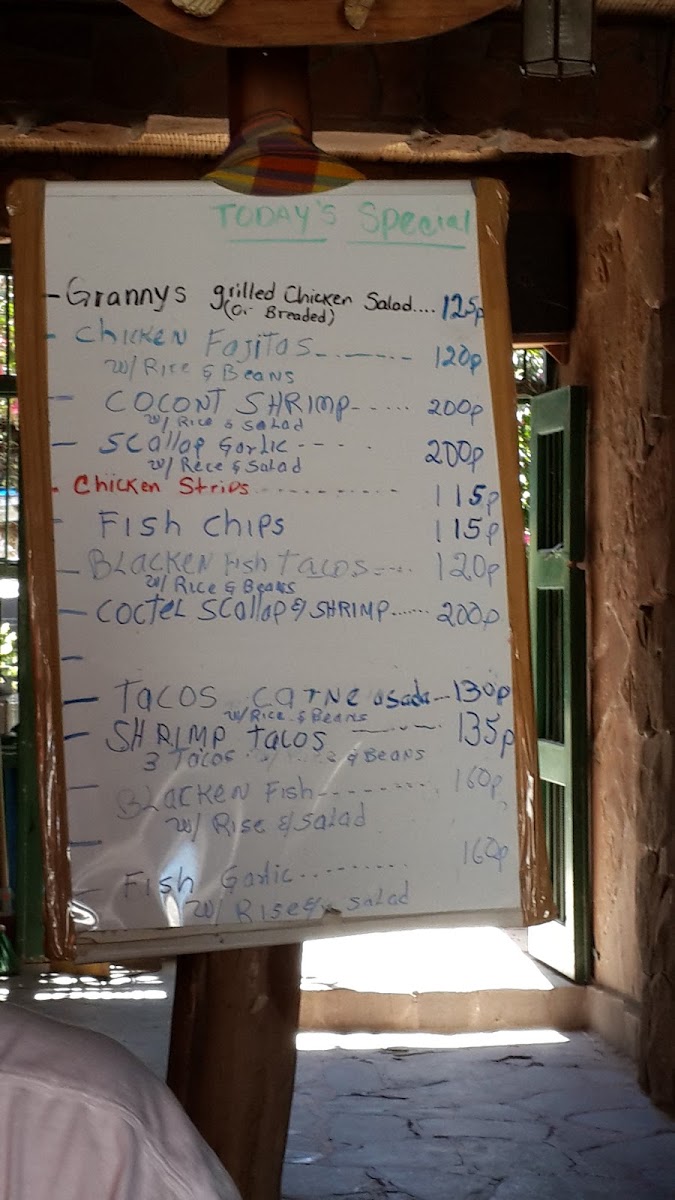 TODAY'S Special
- Grannys grilled Chicken Salad.... 125p
(Or Breaded)
- Chicken Fajitas_._.___.__ 120p
w/ Rice & Beans
- COCONT SHRIMP--..... 200p
w/ Rice & Salad
- Scallop Garlic---- . 200p
w/ Rece & Salad
- Chicken Strips............ 115p
- FISH CHIPS 115p
- BLACKEN FISH TACOS-... 120p
w/ Rice & Beans
- COCTEL SCALLOP & SHRIMP....... 200p
-
- TACOS CARNE asada-- 130p
w/Rice & Beans
- SHRIMP TACOS ------- 135p
3 Tacos & Beans
- BLACKEN FISH--........ 160p
w/ Rise & Salad
-
160p
- Fish Garlic..........
w/ Rise & Salad